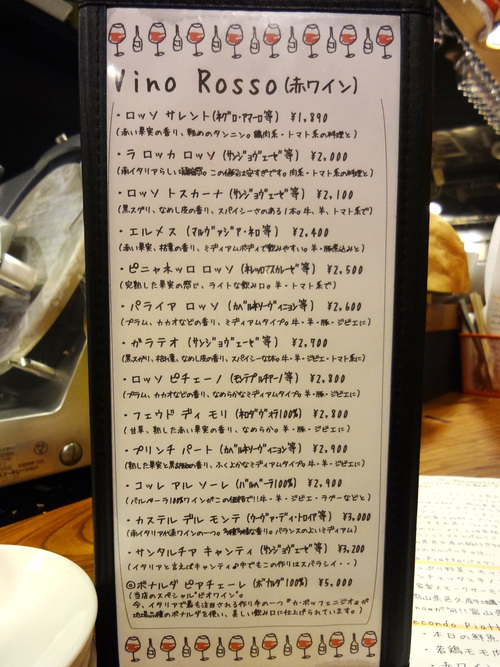 Vino Rosso (赤ワイン)
・ロッソ サレント (ネグロ・アマーロ等) ¥1,890
(赤い果実の香り、軽めのタンニン。鶏肉系・トマト系の料理と)
・ラ ロッカ ロッソ (サンジョヴェーゼ等) ¥2,000
(南イタリアらしい この値段は安すぎです。肉系・トマト系の料理と)
・ロッソ トスカーナ (サンジョヴェーゼ等) ¥2,100
(黒スグリ、なめし皮の香り、スパイシーさのある1本。牛、羊、トマト系で)
・エルメス (マルヴァジア・ネロ等) ¥2,400
(赤い果実、枯葉の香り、ミディアムボディで飲みやすい。羊・豚煮込みと)
・ピニャネッロ ロッソ (ネレッロマスカレーゼ等) ¥2,500
(完熟した果実の感じ、ライトな飲み口。牛・羊・トマト系で)
・パライア ロッソ (カベルネソーヴィニヨン等) ¥2,600
(プラム、カカオなどの香り、ミディアムタイプ。牛・羊・豚・ジビエに)
・ガラテオ (サンジョヴェーゼ等) ¥2,700
(黒スグリ、枯れ葉、なめし皮の香り、スパイシーな1本。牛・羊・ジビエ・トマト系に)
・ロッソ ピチェーノ (モンテプルチアーノ等) ¥2,800
(プラム、カカオなどの香り、なめらかなミディアムタイプ。牛・羊・ジビエに)
・フェウド ディ モリ (ネロダヴォラ100%) ¥2,800
(甘草、熟した赤い果実の香り、なめらか。羊・豚・ジビエに)
・プリンチ パート (カベルネソーヴィニヨン等) ¥2,900
(熟した果実と黒胡椒の香り、ふくよかなミディアムタイプ。牛・羊・ジビエに)
・コッレ アル ソーレ (バルベーラ100%) ¥2,900
(バルベーラ100%ワインがこの価格で!!牛・羊・ジビエ・ラグーなどと)
・カステル デル モンテ (ウーヴァ・ディ・トロイア等) ¥3,000
(南イタリア代表ワインの一つ。多種多様な香り。バランスのよいミディアム)
・サンタルチア キャンティ (サンジョヴェーゼ等) ¥3,200
(イタリアと言えばキャンティ♪中でもこの作りはスバラシイ・・)
◎ボナルダ ピアチェーレ (ボナルダ100%) ¥5,000
(当店のスペシャル"ビオワイン"。
今、イタリアで最も注目される作り手の一つ"カ・ボッフェニジオ"が
地元品種のボナルダを使い、美しい飲み口に仕上げられています。)
econdo Piatt
・本日の鮮魚
・若鶏モモ肉